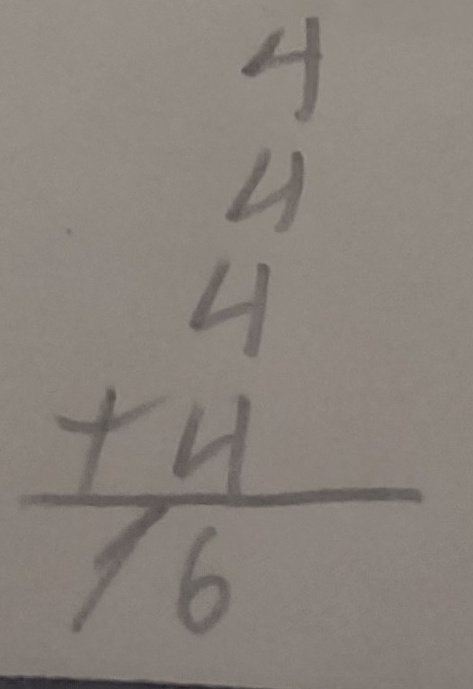 4
4
4
+ 4
16